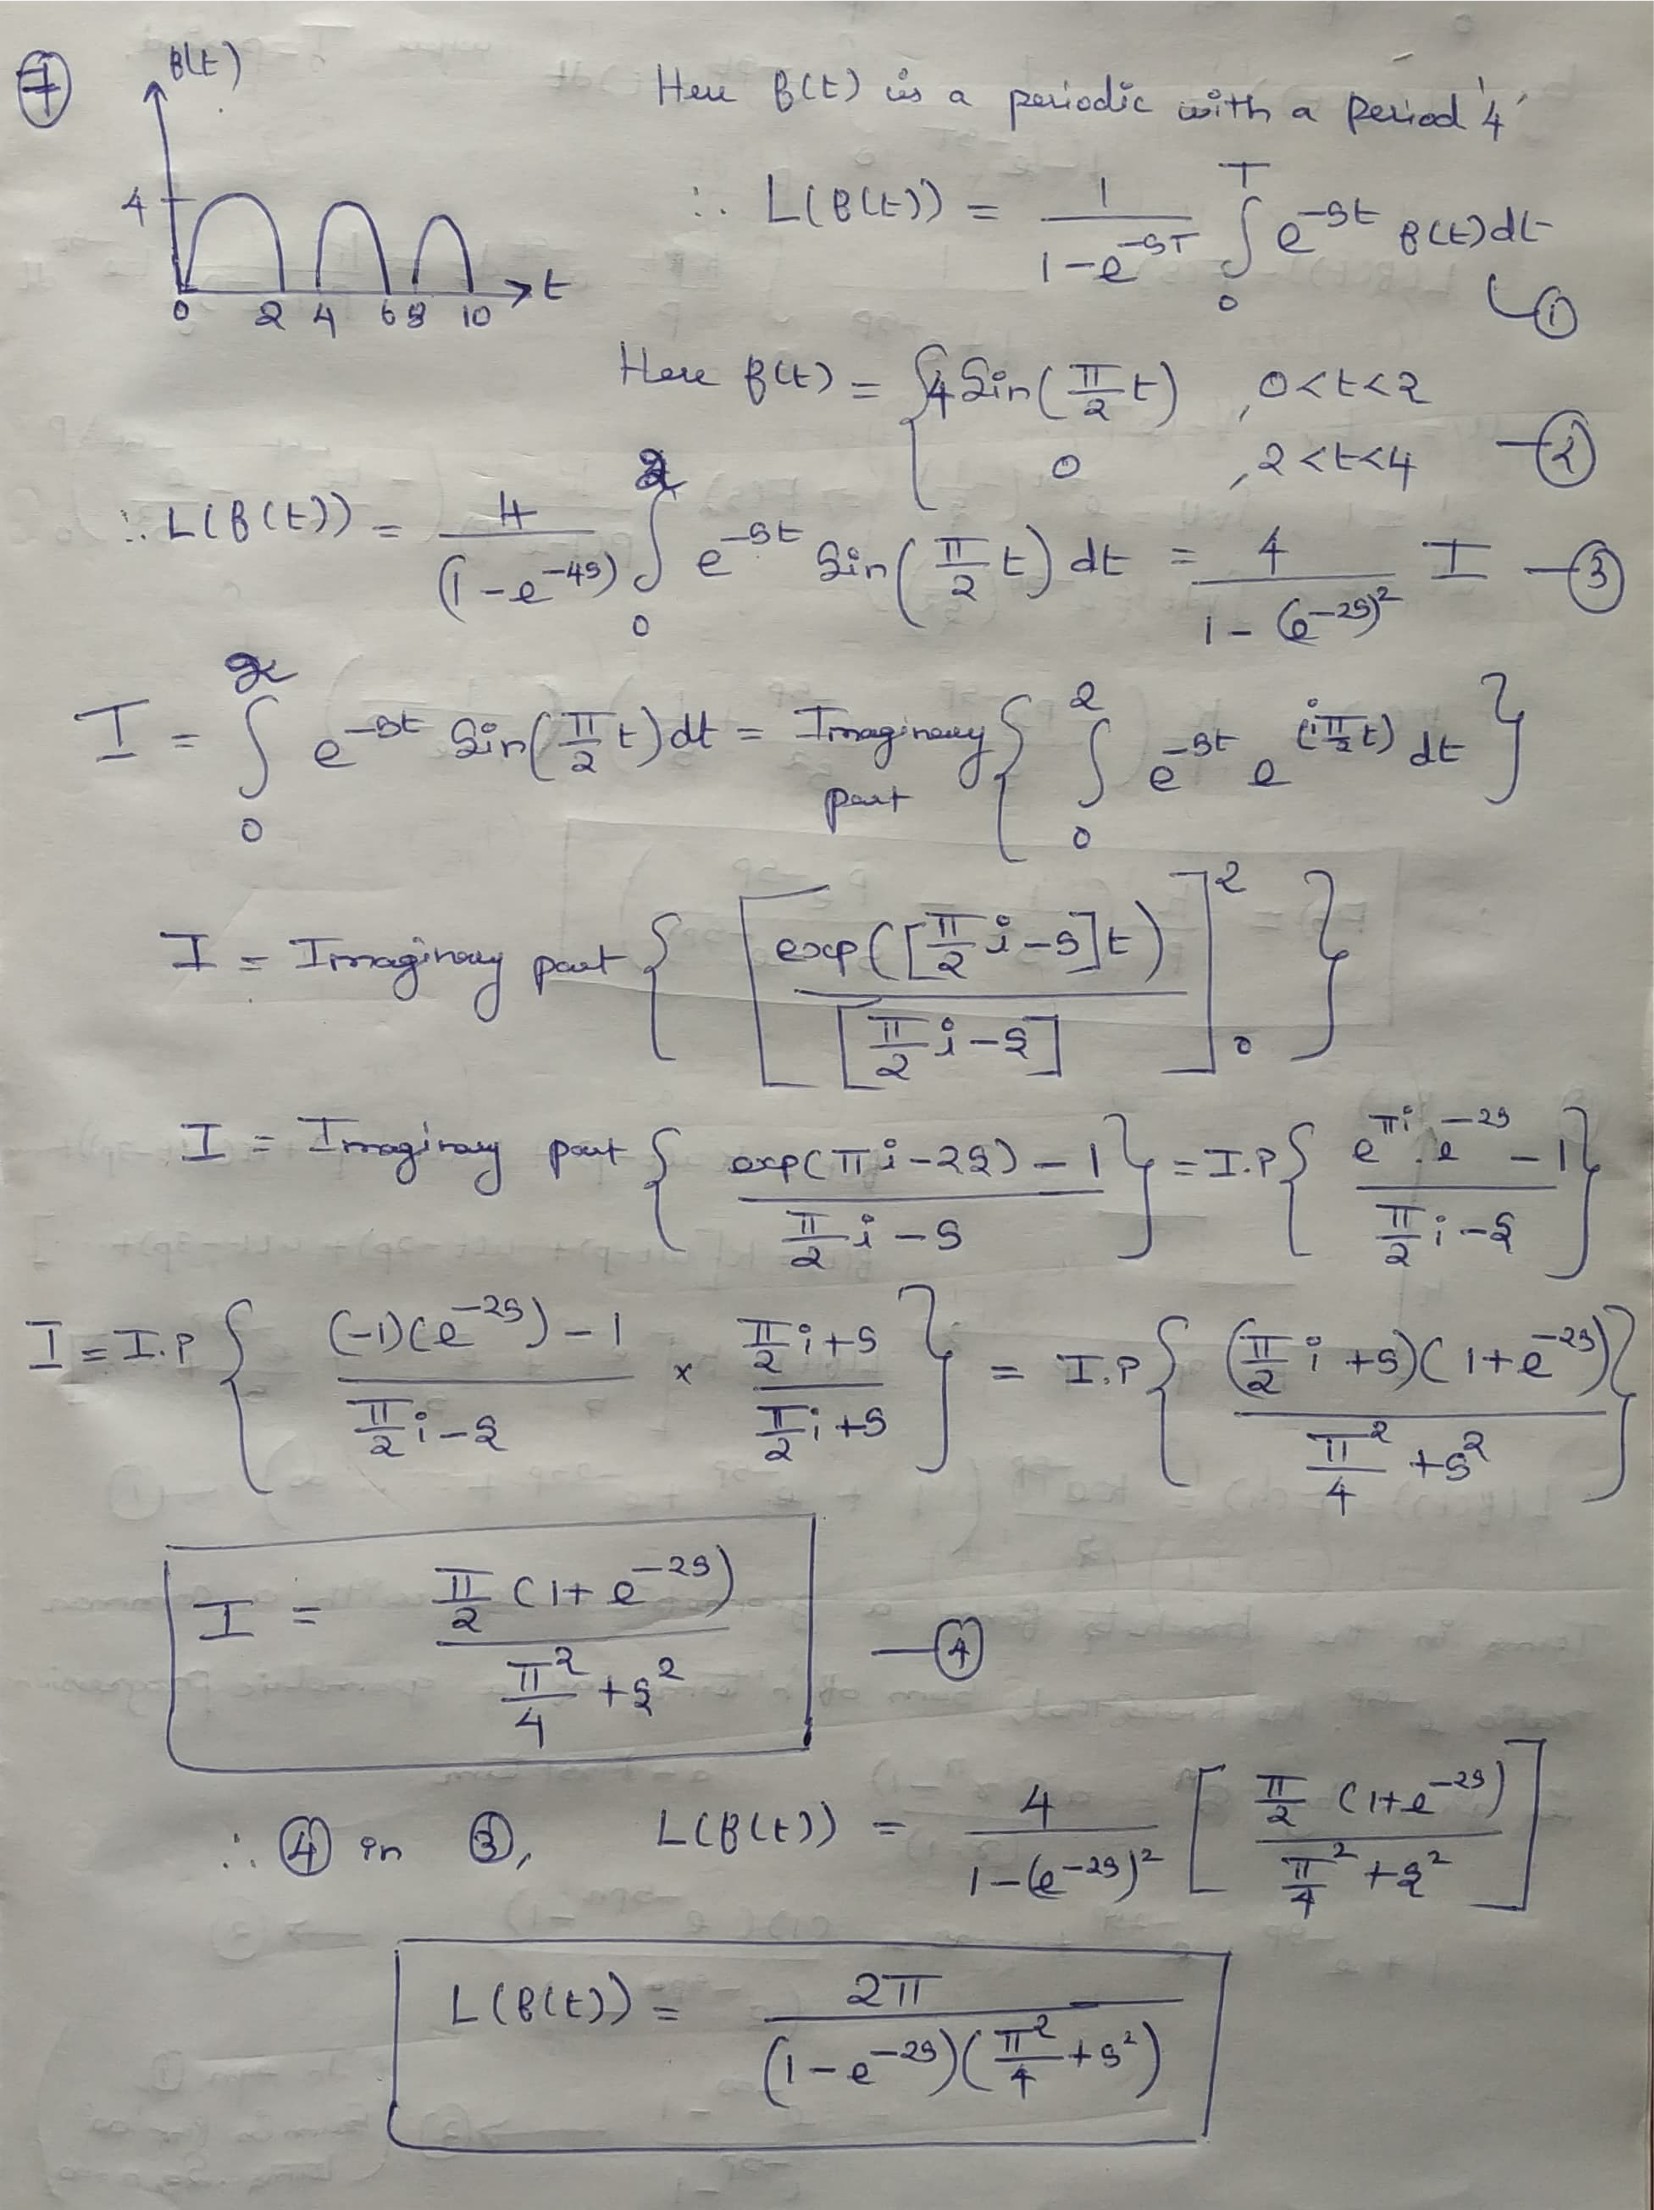 7
f(t)
Here f(t) is a periodic with a period '4'
4
∴ L(f(t)) = 1/(1-e^{-sT}) ∫_0^T e^{-st} f(t)dt
①
t
0 2 4 6 8 10
Here f(t) = { 4 Sin(π/2 t) , 0<t<2
0 , 2<t<4 —②
∴ L(f(t)) = 4/(1-e^{-4s}) ∫_0^2 e^{-st} Sin(π/2 t) dt = 4/(1-(e^{-2s})^2) I —③
I = ∫_0^2 e^{-st} Sin(π/2 t)dt = Imaginary part { ∫_0^2 e^{-st} e^{(iπ/2 t)} dt }
I = Imaginary part { [ exp([π/2 i-s]t) / [π/2 i-s] ]_0^2 }
I = Imaginary part { (exp(πi-2s)-1) / (π/2 i-s) } = I.P { (e^{πi}.e^{-2s}-1) / (π/2 i-s) }
I = I.P { ((-1)(e^{-2s})-1) / (π/2 i-s) × (π/2 i+s) / (π/2 i+s) } = I.P { (π/2 i+s)(1+e^{-2s}) / (π^2/4 +s^2) }
I = π/2 (1+e^{-2s}) / (π^2/4 +s^2) —④
∴ ④ in ③, L(f(t)) = 4/(1-(e^{-2s})^2) [ π/2 (1+e^{-2s}) / (π^2/4 +s^2) ]
L(f(t)) = 2π / ((1-e^{-2s})(π^2/4 +s^2))